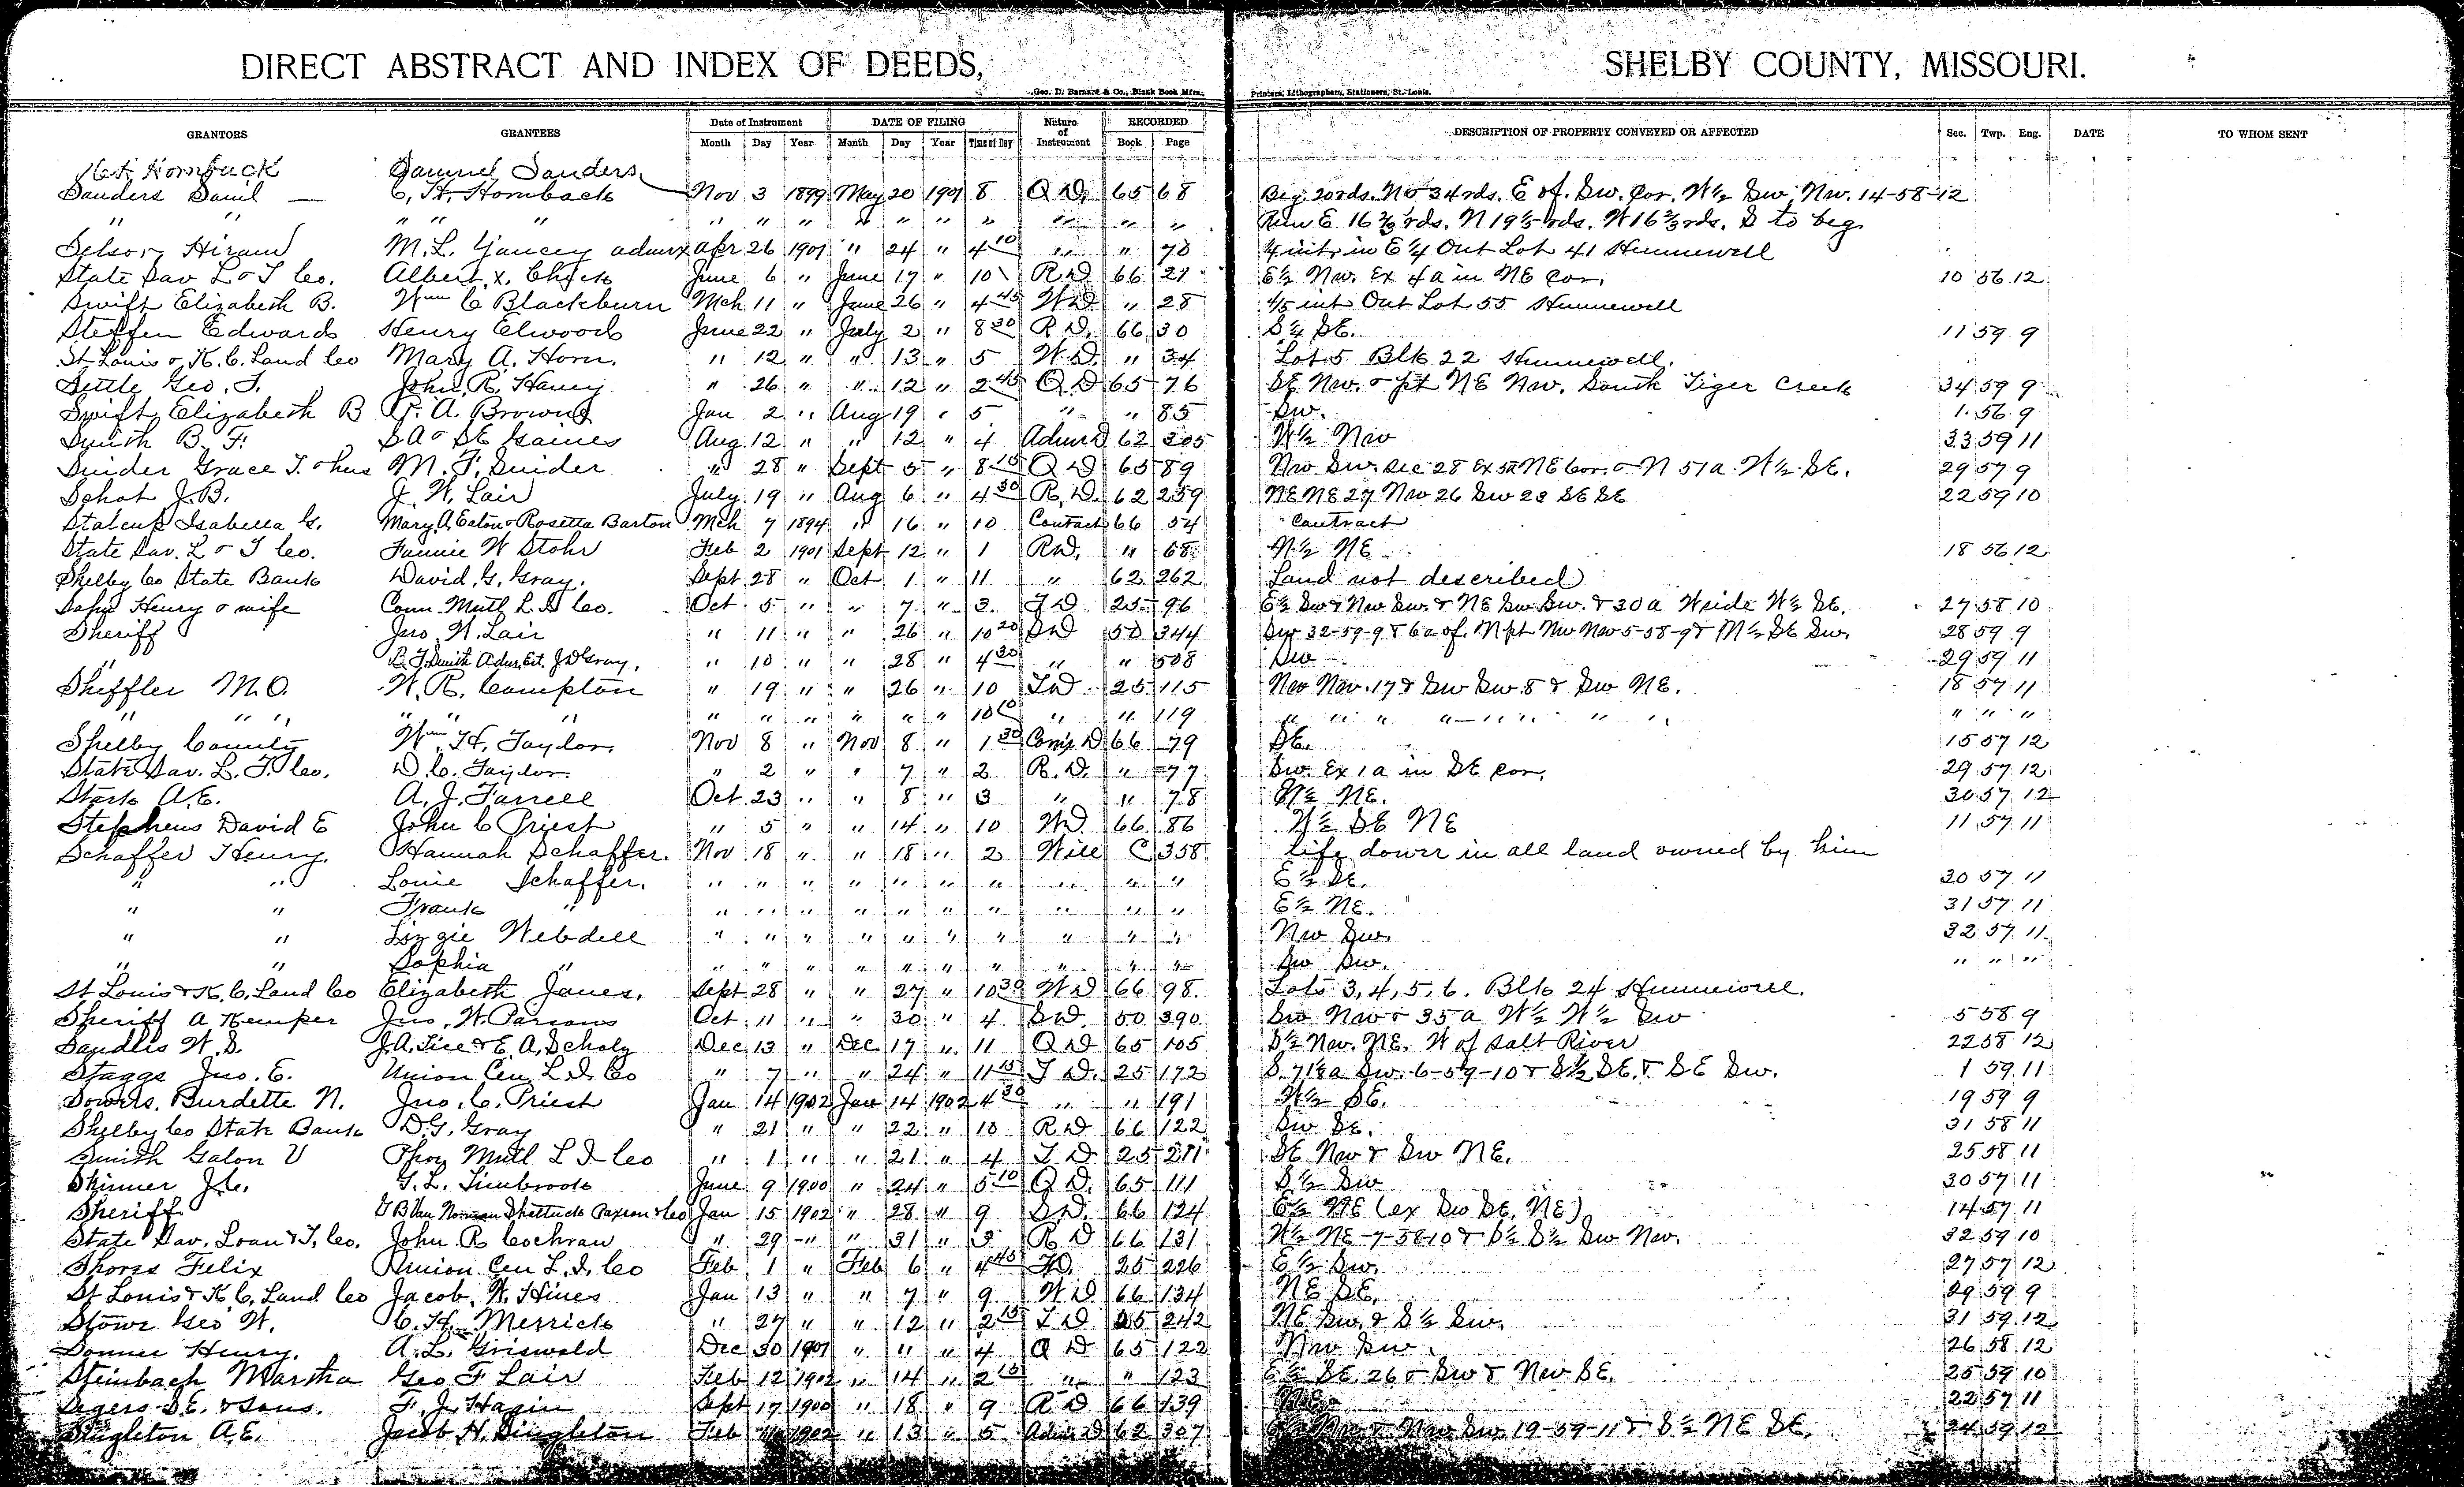 DIRECT ABSTRACT AND INDEX OF DEEDS, SHELBY COUNTY, MISSOURI.
Geo. D. Barnard & Co., Blank Book Mfrs. Printers, Lithographers, Stationers, St. Louis.
GRANTORS GRANTEES Date of Instrument DATE OF FILING Nature of Instrument RECORDED DESCRIPTION OF PROPERTY CONVEYED OR AFFECTED Sec. Twp. Rng. DATE TO WHOM SENT
Month Day Year Month Day Year Time of Day Book Page
Hornback Samuel Sanders
Sanders Saml — C. H. Hornback Nov 3 1899 May 20 1901 8 Q D. 65 68 Beg. 20 rds. N & 34 rds. E of Sw. Cor. W½ Sw Nw. 14-58-12
" " " " " " " " " " " " " " " Run E 16⅔ rds. N 19½ rds. W 16⅔ rds. S to beg
Selsor Hiram M. L. Yancey admrx Apr 26 1901 " 24 " 4 10 " " 70 ¼ int. in E¼ Out Lot 41 Hunnewell
State Sav L & T Co. Albert X. Chick June 6 " June 17 " 10 R D 66 21 E½ Nw. Ex 4a in NE Cor. 10 56 12
Swift Elizabeth B. Wm C Blackburn Mch 11 " June 26 " 4 45 W D " 28 ⅕ int Out Lot 55 Hunnewell
Steffen Edward Henry Elwood June 22 " July 2 " 8 30 R D. 66 30 S½ SE. 11 59 9
St Louis & K. C. Land Co Mary A. Horn. " 12 " " 13 " 5 W D. " 34 Lot 5 Blk 22 Hunnewell.
Settle Geo. T. John R. Haney " 26 " " 12 " 2 45 Q D 65 76 SE Nw. & pt NE Nw. South Tiger Creek 34 59 9
Swift Elizabeth B P. A. Brown Jan 2 " Aug 19 " 5 " " 85 Sw. 1 56 9
Smith B. F. S A & S E Gaines Aug. 12 " " 12 " 4 Adm D 62 305 W½ Nw 33 59 11
Snider Grace T. & hus M. F. Snider " 28 " Sept 5 " 8 15 Q D 65 89 Nw Sw. Sec 28 Ex 5a NE Cor. & N 51a W½ SE. 29 57 9
Schot J. B. J. W. Lair July 19 " Aug 6 " 4 30 R. D. 62 259 NE NE 27 Nw 26 Sw 23 SE SE 22 59 10
Stalcup Isabella G. Mary A. Eaton & Rosetta Barton Mch 7 1894 " 16 " 10 Contract 66 54 Contract
State Sav. L & T Co. Fannie W Stohr Feb 2 1901 Sept 12 " 1 R D. " 68 N½ NE 18 56 12
Shelby Co State Bank David G. Gray. Sept 28 " Oct 1 " 11 " 62 262 Land not described
Sahn Henry & wife Conn Mutl L I Co. Oct 5 " " 7 " 3 T D 25 96 E½ Sw & Nw Sw. & NE Sw Sw. & 30a W side W½ SE. 27 58 10
Sheriff Jno. W. Lair " 11 " " 26 " 10 20 S D 50 344 Sw 32-59-9 & 6a of. N pt Nw Nw 5-58-9 & N½ SE Sw. 28 59 9
" B. F. Smith Adm. Est. J D Gray. " 10 " " 28 " 4 30 " " 508 Sw 29 59 11
Sheffler M. O. W. R. Compton " 19 " " 26 " 10 T D 25 115 Nw Nw. 17 & Sw Sw 8 & Sw NE. 18 57 11
" " " " " " " " " " " 10 10 " " 119 " " " " " " " " " "
Shelby County Wm H. Taylor. Nov 8 " Nov 8 " 1 30 Com's D 66 79 SE. 15 57 12
State Sav. L. T. Co. D. C. Taylor. " 2 " " 7 " 2 R. D. " 77 Sw. Ex 1a in SE Cor. 29 57 12
Stark A. E. A. J. Farrell Oct. 23 " " 8 " 3 " " 78 N½ NE. 30 57 12
Stephens David E John C Priest " 5 " " 14 " 10 W D. 66 86 W½ SE NE 11 57 11
Schaffer Henry. Hannah Schaffer. Nov 18 " " 18 " 2 Will C 358 life dower in all land owned by him
" " Louie Schaffer. " " " " " " " " " " E½ SE. 30 57 11
" " Frank " " " " " " " " " " " E½ NE. 31 57 11
" " Lizzie Webdell " " " " " " " " " " Nw Sw. 32 57 11
" " Sophia " " " " " " " " " " " Sw Sw. " " "
St Louis & K. C. Land Co Elizabeth Janes. Sept 28 " " 27 " 10 30 W D 66 98. Lots 3, 4, 5, 6. Blk 24 Hunnewell.
Sheriff A Kemper Jno. W. Parsons Oct. 11 " " 30 " 4 S D. 50 390 Sw Nw & 35a W½ W½ Sw 5 58 9
Sandlis W. S. J. A. Tice & E. A. Scholz Dec 13 " Dec 17 " 11 Q D 65 105 S½ Nw. NE. W of Salt River 22 58 12
Staggs Jno. E. Union Cen L. I. Co " 7 " " 24 " 11 15 T D. 25 172 S. 71⅛a Sw. 6-59-10 & S½ SE. & SE Sw. 1 59 11
Sowers. Burdette N. Jno. C. Priest Jan 14 1902 Jan 14 1902 4 30 " " 191 W½ SE. 19 59 9
Shelby Co State Bank D. G. Gray " 21 " " 22 " 10 R D 66 122 Sw SE. 31 58 11
Smith Galon V Phoy Mutl L I Co " 1 " " 21 " 4 T D 25 211 SE Nw & Sw NE. 25 58 11
Skinner J. C. G. L. Timbrook June 9 1900 " 24 " 5 10 Q D. 65 111 S½ Sw 30 57 11
Sheriff G B Van Norman Shattuck Paxson & Co Jan 15 1902 " 28 " 9 S D. 66 124 E½ NE (ex Sw SE. NE) 14 57 11
State Sav. Loan & T. Co. John R Cochran " 29 " " 31 " 3 R D 66 131 W½ NE-7-58-10 & S½ S½ Sw Nw. 32 59 10
Shores Felix Union Cen L. I. Co Feb 1 " Feb 6 " 4 45 T D. 25 226 E½ Sw. 27 57 12
St Louis & K C. Land Co Jacob. W. Hines Jan 13 " " 7 " 9 W D 66 134 NE SE. 29 59 9
Stowe Geo W. C. H. Merrick " 27 " " 12 " 2 15 T D 25 242 NE Sw. & S½ Sw. 31 59 12
Sonner Henry. A. L. Griswold Dec 30 1901 " 11 " 4 Q D 65 122 Nw Sw. 26 58 12
Steinbach Martha Geo F Lair Feb 12 1902 " 14 " 2 15 " " 123 E½ SE 26 & Sw & Nw SE. 25 59 10
Segers S. E. & Sons. F. J. Hagin Sept 17 1900 " 18 " 9 R D 66 139 22 57 11
Singleton A. E. Jacob H. Singleton Feb 1902 " 13 " 5 Adm D 62 307 Nw & Nw Sw. 19-59-11 & S½ NE SE. 24 59 12